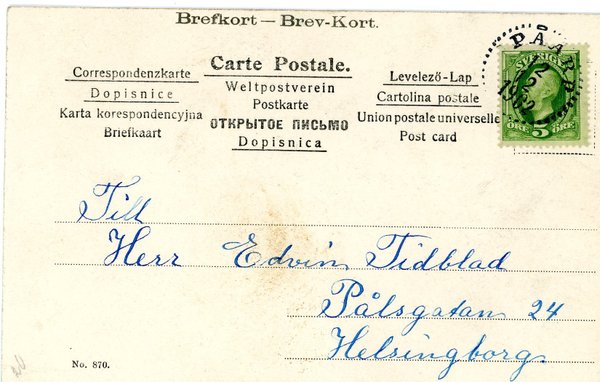 Brefkort — Brev-Kort.
Carte Postale.
Correspondenzkarte
Dopisnice
Karta korespondencyjna
Briefkaart
Weltpostverein
Postkarte
ОТКРЫТОЕ ПИСЬМО
Dopisnica
Levelező-Lap
Cartolina postale
Union postale universelle
Post card
PÅARP
SVERIGE
ÖRE 5 ÖRE
Till
Herr Edvin Tidblad
Pålsgatan 24
Helsingborg.
No. 870.